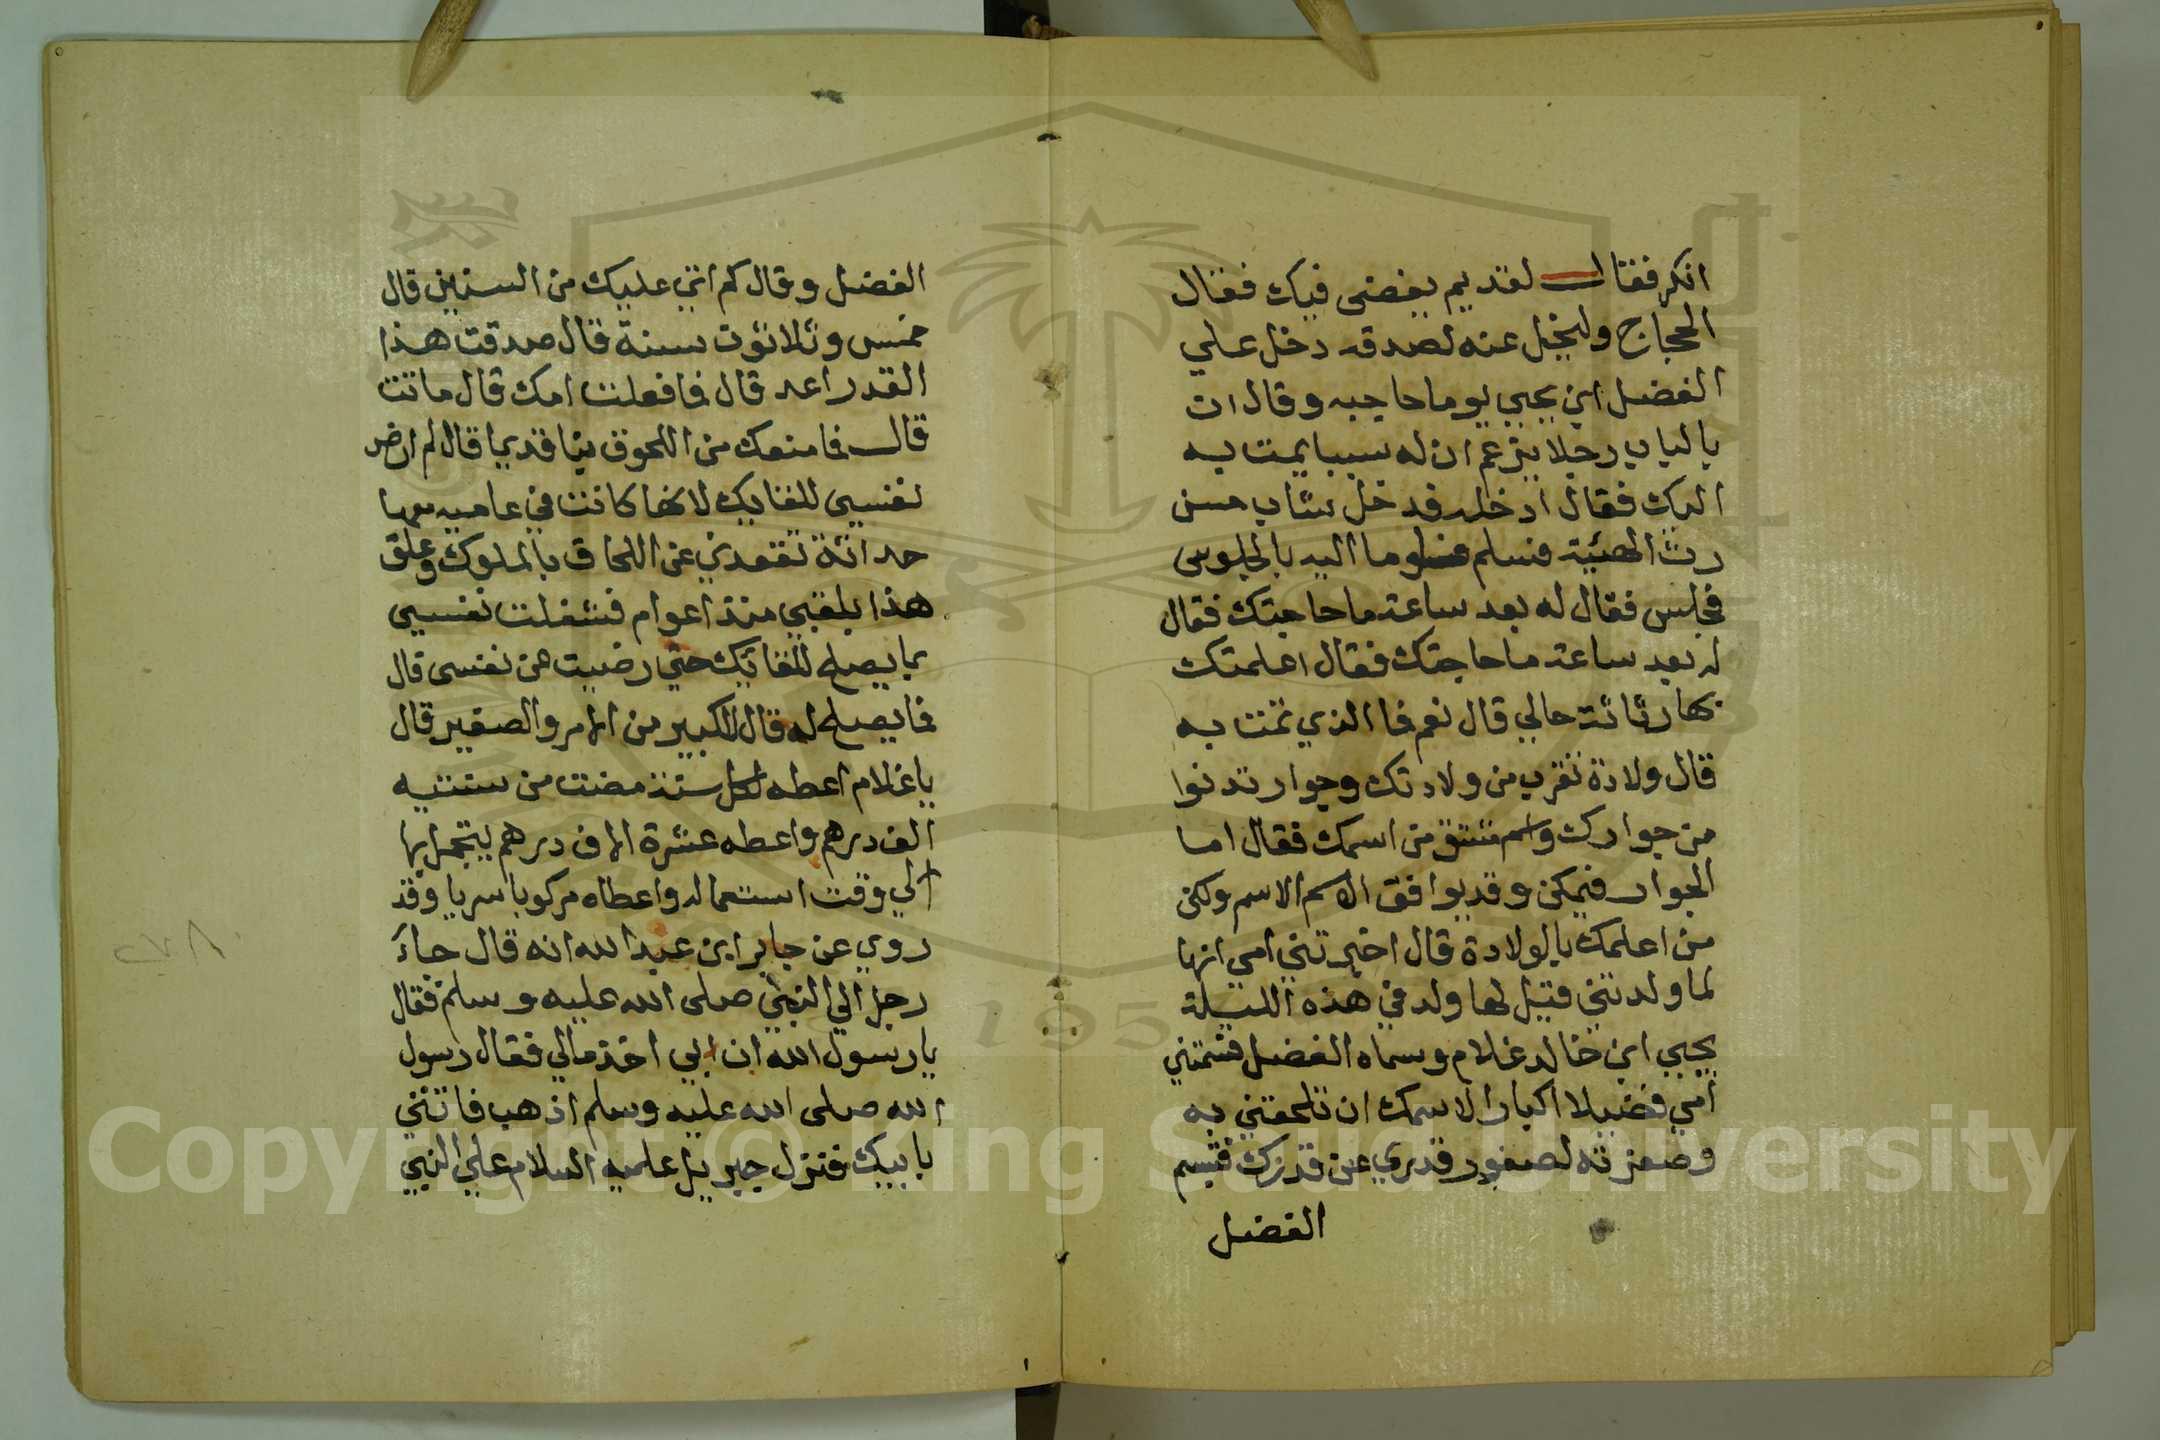 انكر فقال لقديم بغضى فيك فقال
الحجاج وليخل عنه لصدقه دخل علي
الفضل ابن يحيي يوما حاجبه وقال ان
بالباب رجلا يزعم ان له سببا يمت به
اليك فقال ادخله فدخل شاب حسن
رث الهيئة فسلم فاوما اليه بالجلوس
فجلس فقال له بعد ساعة ما حاجتك فقال
له بعد ساعة ما حاجتك فقال اعلمتك
بها رثاثة حالي قال نعم فما الذي تمت به
قال ولادة تقرب من ولادتك وجوار تدنوا
من جوارك واسم مشتق من اسمك فقال اما
الجوار فيمكن وقد يوافق الاسم الاسم ولكن
من اعلمك بالولادة قال اخبرتني امي انها
لما ولدتني قيل لها ولد في هذه الليلة
يحيي ابن خالد غلام وسماه الفضل فسمتني
امي فضيلا اكبارا لاسمك ان تلحقني به
وصغرته لصغور قدري عن قدرك فتبسم
الفضل
الفضل وقال كم اتي عليك من السنين قال
خمس وثلاثون سنة قال صدقت هذا
القدر اعد قال فما فعلت امك قال ماتت
قال فما منعك من اللحوق بنا قديما قال لم ارض
نفسي للقايك لانها كانت في عاميه معها
حداثة تقعدني عن اللحاق بالملوك وعلق
هذا بقلبي منذ اعوام فشغلت نفسي
بما يصلح للقائك حتي رضيت من نفسى قال
فما يصلح له قال الكبير من الامر والصغير قال
يا غلام اعطه لكل سنة مضت من سنتيه
الف درهم واعطه عشرة الاف درهم يتجمل بها
الي وقت استعماله واعطاه مركوبا سريا وقد
روي عن جابر ابن عبد الله انه قال جاء
رجل الي النبي صلى الله عليه وسلم فقال
يا رسول الله ان ابي اخذ مالي فقال رسول
الله صلى الله عليه وسلم اذهب فاتني
بابيك فنزل جبريل عليه السلام علي النبي
٢٧٨
Copyright © King Saud University
195